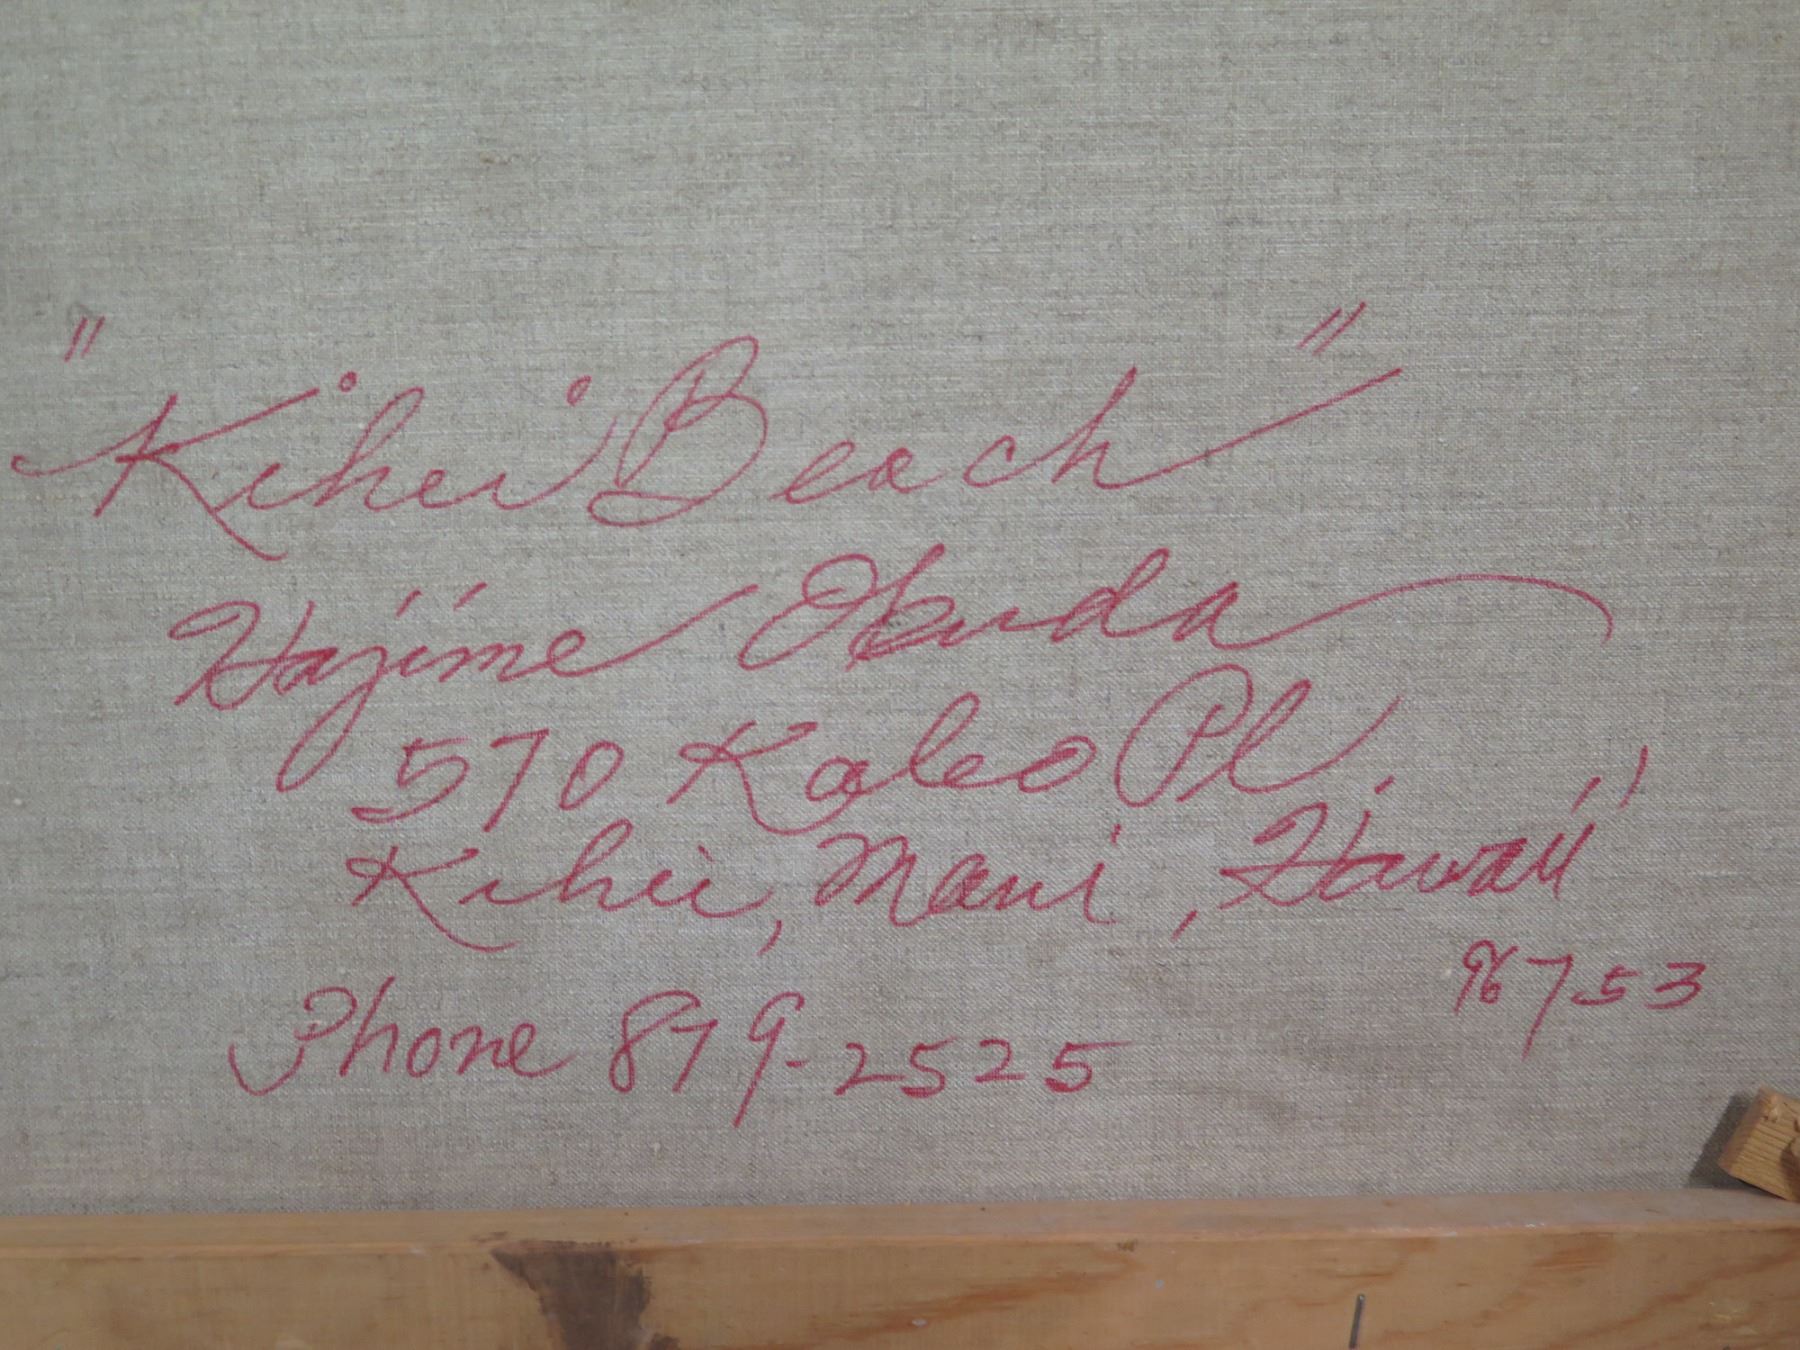 "Kihei Beach"
Hajime Okuda
570 Kaleo Pl.
Kihei, Maui, Hawaii,
96753
Phone 879-2525